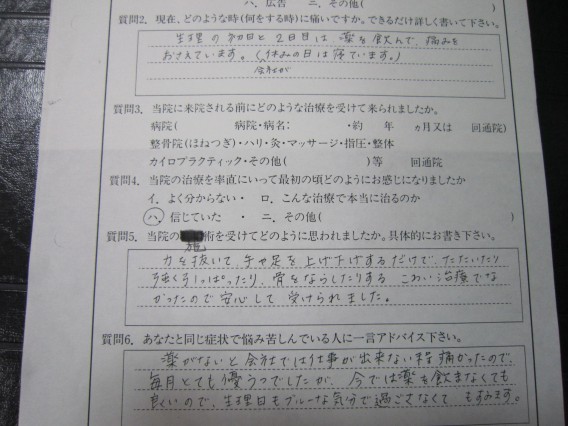 ハ、広告　ニ、その他(
質問2. 現在、どのような時(何をする時)に痛いですか。できるだけ詳しく書いて下さい。
生理の初日と2日目は薬を飲んで、痛みを
おさえています。(休みの日は停ています。)
会社が
質問3. 当院に来院される前にどのような治療を受けて来られましたか。
病院(　　　病院・病名:　　　・約　年　ヵ月又は　回通院)
整骨院(ほねつぎ)・ハリ・灸・マッサージ・指圧・整体
カイロプラクティック・その他(　　　)等　回通院
質問4. 当院の治療を率直にいって最初の頃どのようにお感じになりましたか
イ. よく分からない・ ロ. こんな治療で本当に治るのか
ハ. 信じていた ・ ニ. その他(　　　)
質問5. 当院の術を受けてどのように思われましたか。具体的にお書き下さい。
施
力を抜いて、手や足を上げ下げするだけで、たたいたり
強くすしっぱったり、骨をならしたりする こわい治療でな
かったので安心して 受けられました。
質問6. あなたと同じ症状で悩み苦しんでいる人に一言アドバイス下さい。
薬がないと会社では仕事が出来ない程痛かったので、
毎月とても憂うつでしたが、今では薬を飲まなくても
良いので、生理日もブルーな気分で過ごさなくて もすみます。